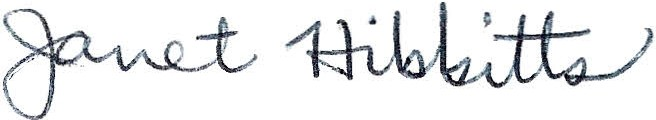 Janet Hibbitts